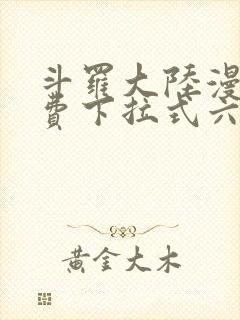 斗羅大陸漫
費下拉式六
黃金大木